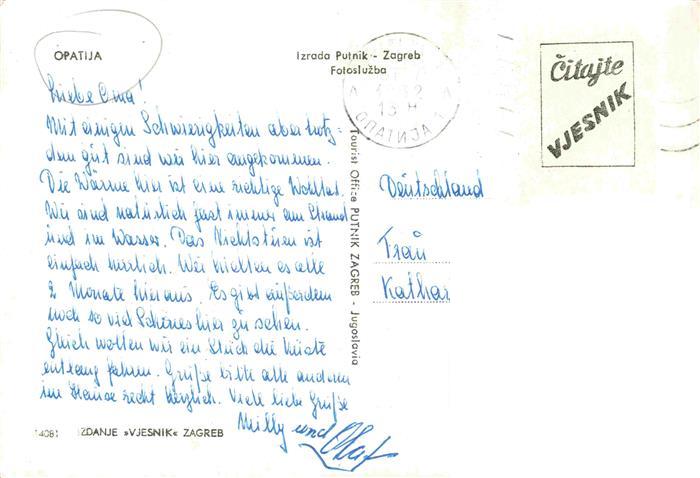 OPATIJA
Izrada Putnik - Zagreb
Fotoslužba
Čitajte
VJESNIK
ОПАТИЈА
Liebe Oma!
Mit einigen Schwierigkeiten aber trotz=
dem gut sind wir hier angekommen.
Die Wärme hier ist eine richtige Wohltat.
Wir sind natürlich fast immer am Strand
und im Wasser. Das Nichtstuen ist
einfach herrlich. Wir hielten es alle
2 Monate hier aus. Es gibt außerdem
noch so viel Schönes hier zu sehen.
Gleich wollen wir ein Stück die Küste
entlang fahren. Grüße bitte alle anderen
im Hause recht herzlich. Viele liebe Grüße
Milly und Olaf
Tourist Office PUTNIK ZAGREB - Jugoslavia
Deutschland
Frau
Kathar
14081 IZDANJE »VJESNIK« ZAGREB